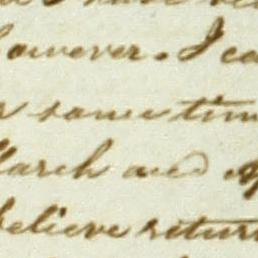 however. I ca
r some tim
March and Ap
believe return